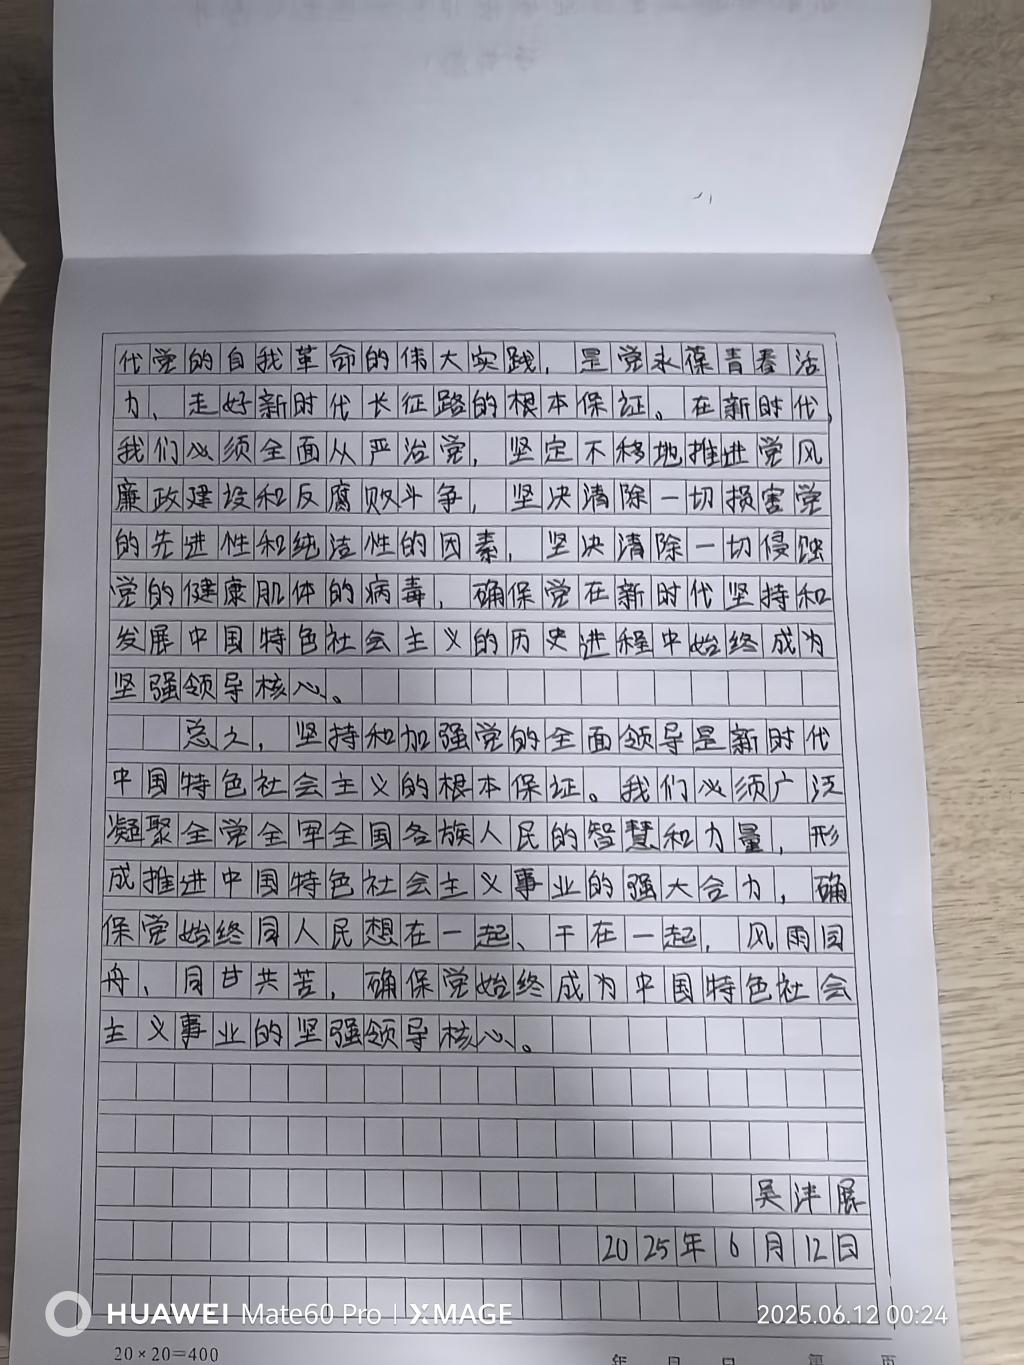 代党的自我革命的伟大实践，是党永葆青春活
力、走好新时代长征路的根本保证。在新时代，
我们必须全面从严治党，坚定不移地推进党风
廉政建设和反腐败斗争，坚决清除一切损害党
的先进性和纯洁性的因素，坚决清除一切侵蚀
党的健康肌体的病毒，确保党在新时代坚持和
发展中国特色社会主义的历史进程中始终成为
坚强领导核心。
总之，坚持和加强党的全面领导是新时代
中国特色社会主义的根本保证。我们必须广泛
凝聚全党全军全国各族人民的智慧和力量，形
成推进中国特色社会主义事业的强大合力，确
保党始终同人民想在一起、干在一起，风雨同
舟、同甘共苦，确保党始终成为中国特色社会
主义事业的坚强领导核心。
吴沣展
2025年6月12日
HUAWEI Mate60 Pro | XMAGE
2025.06.12 00:24
20×20=400
年 月 日 第 页